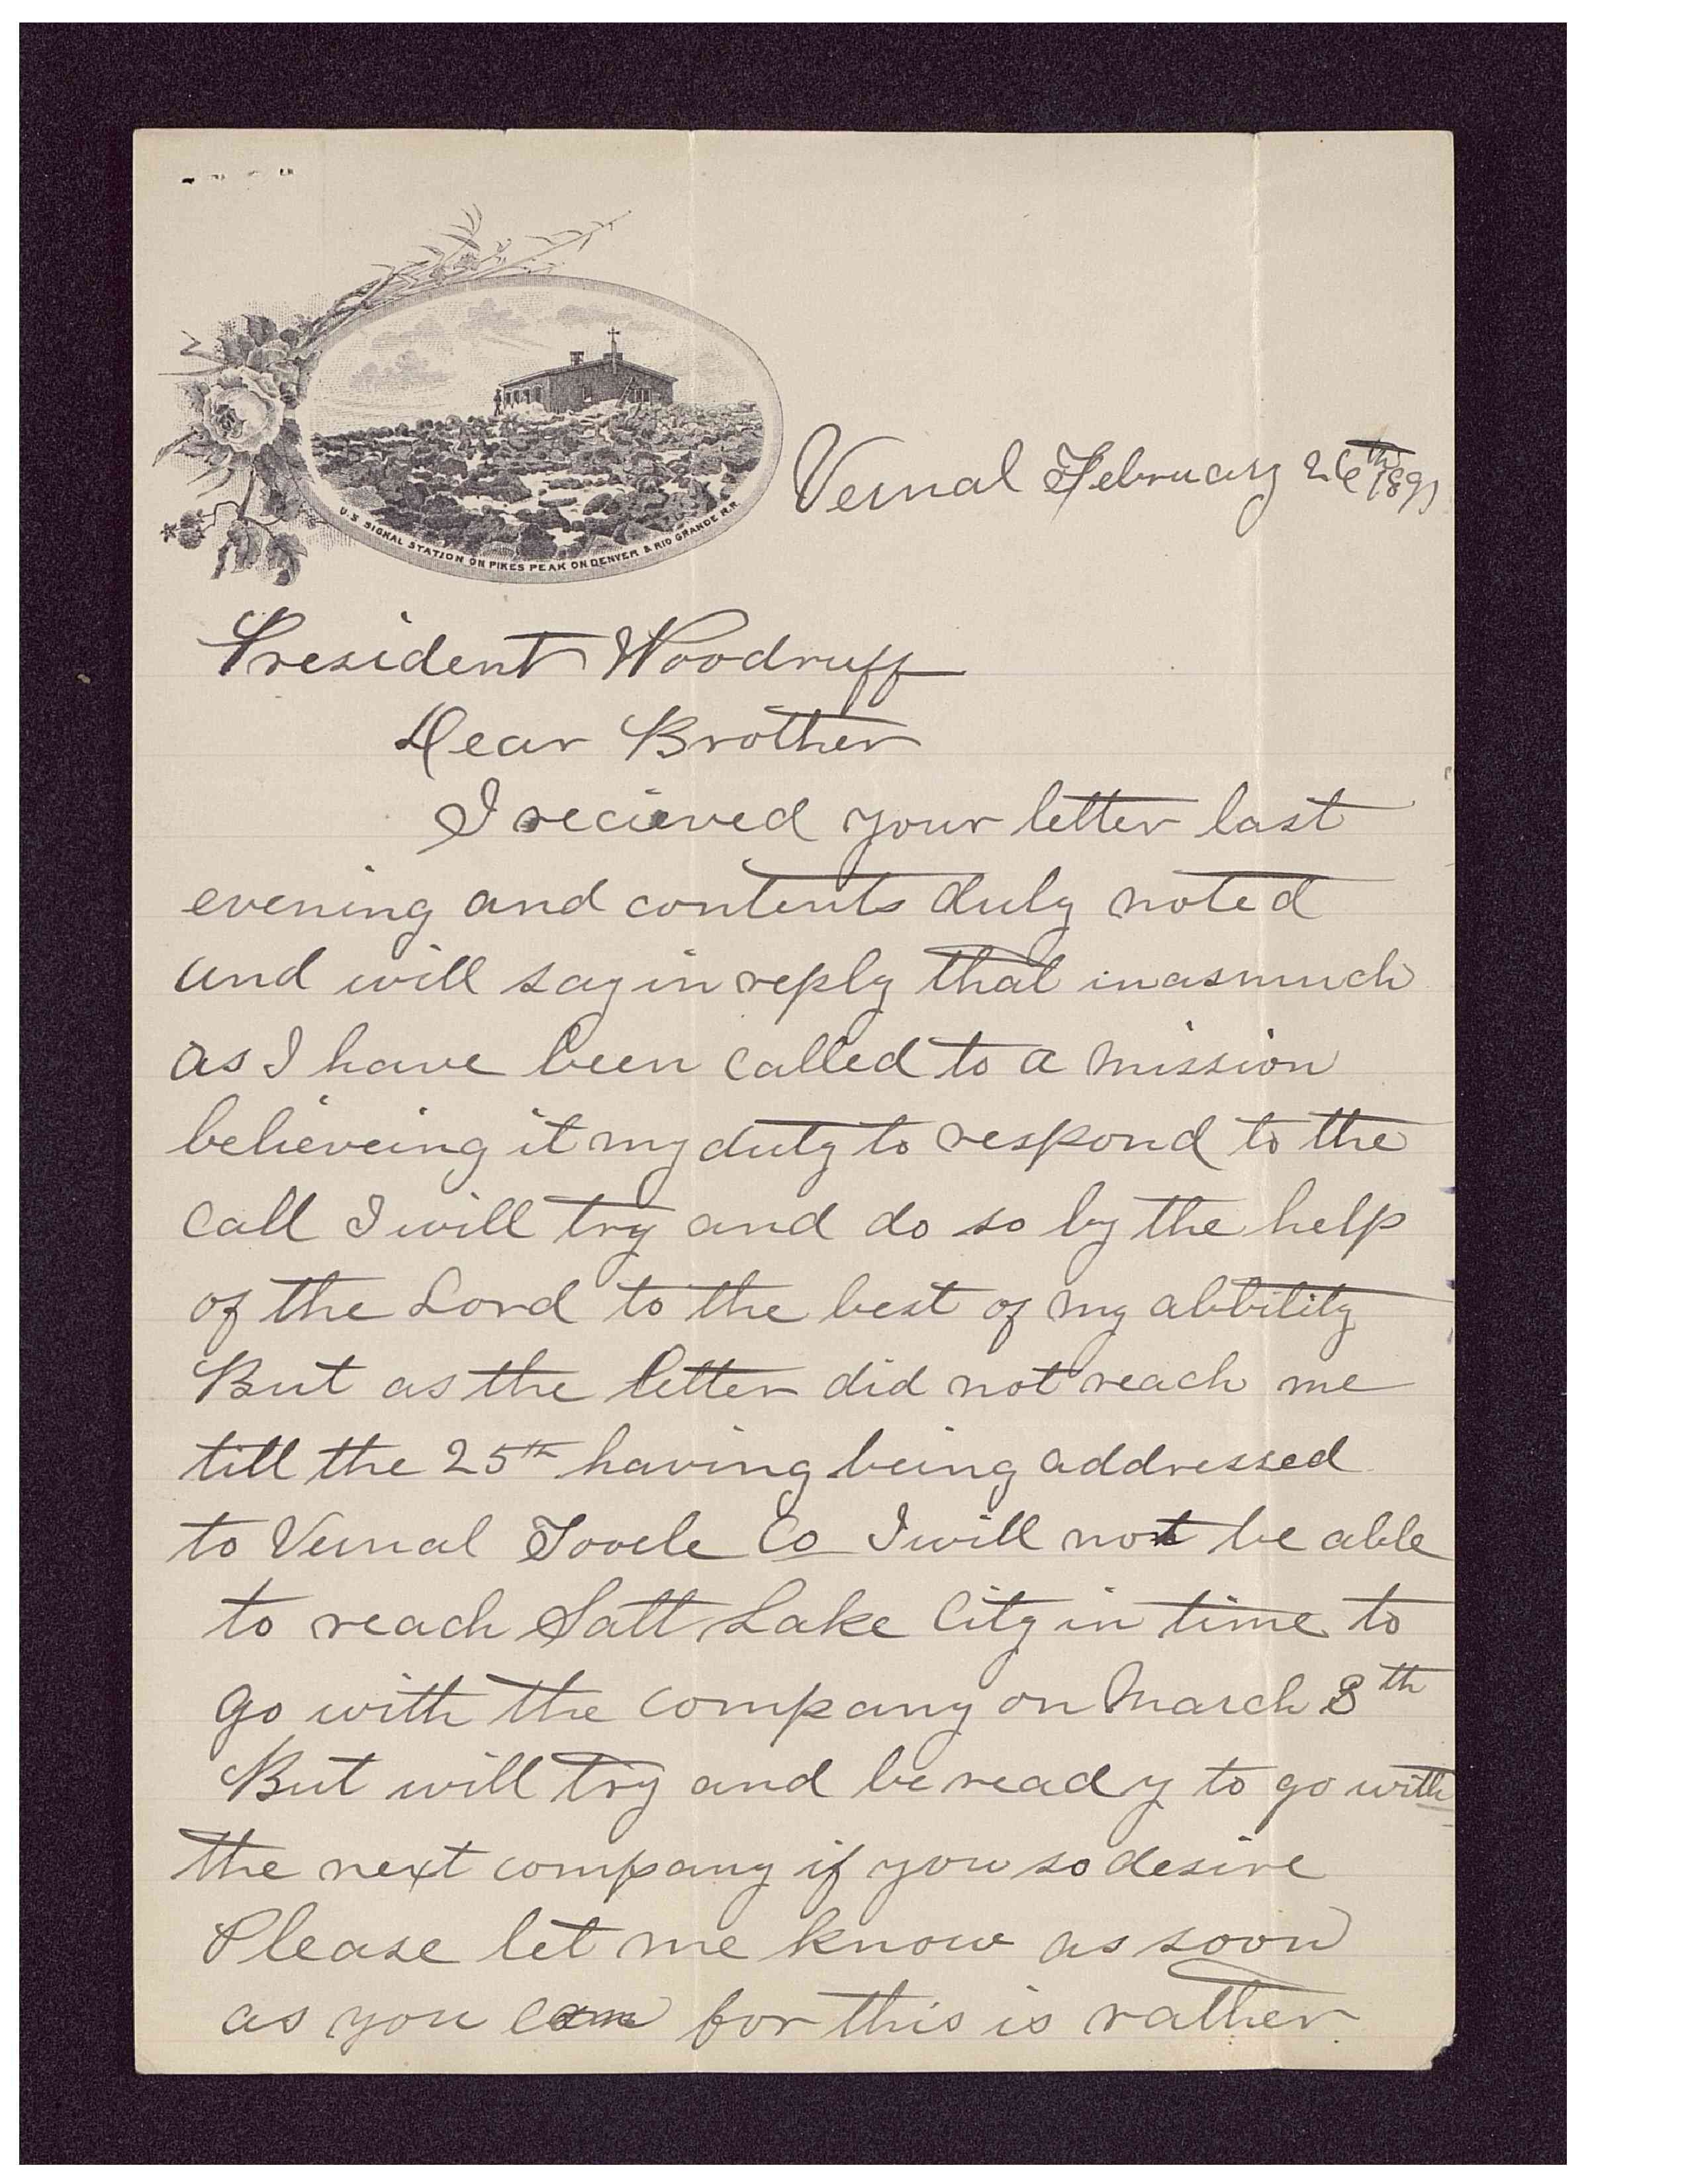 U.S. SIGNAL STATION ON PIKES PEAK ON DENVER & RIO GRANDE R.R.
Vernal February 26th 1890
President Woodruff
Dear Brother
I recieved your letter last
evening and contents duly noted
and will say in reply that inasmuch
as I have been called to a mission
believeing it my duty to respond to the
call I will try and do so by the help
of the Lord to the best of my abbility
But as the letter did not reach me
till the 25th having being addressed
to Vernal Tooele Co I will not be able
to reach Salt Lake City in time to
go with the company on March 8th
But will try and be ready to go with
the next company if you so desire
Please let me know as soon
as you can for this is rather